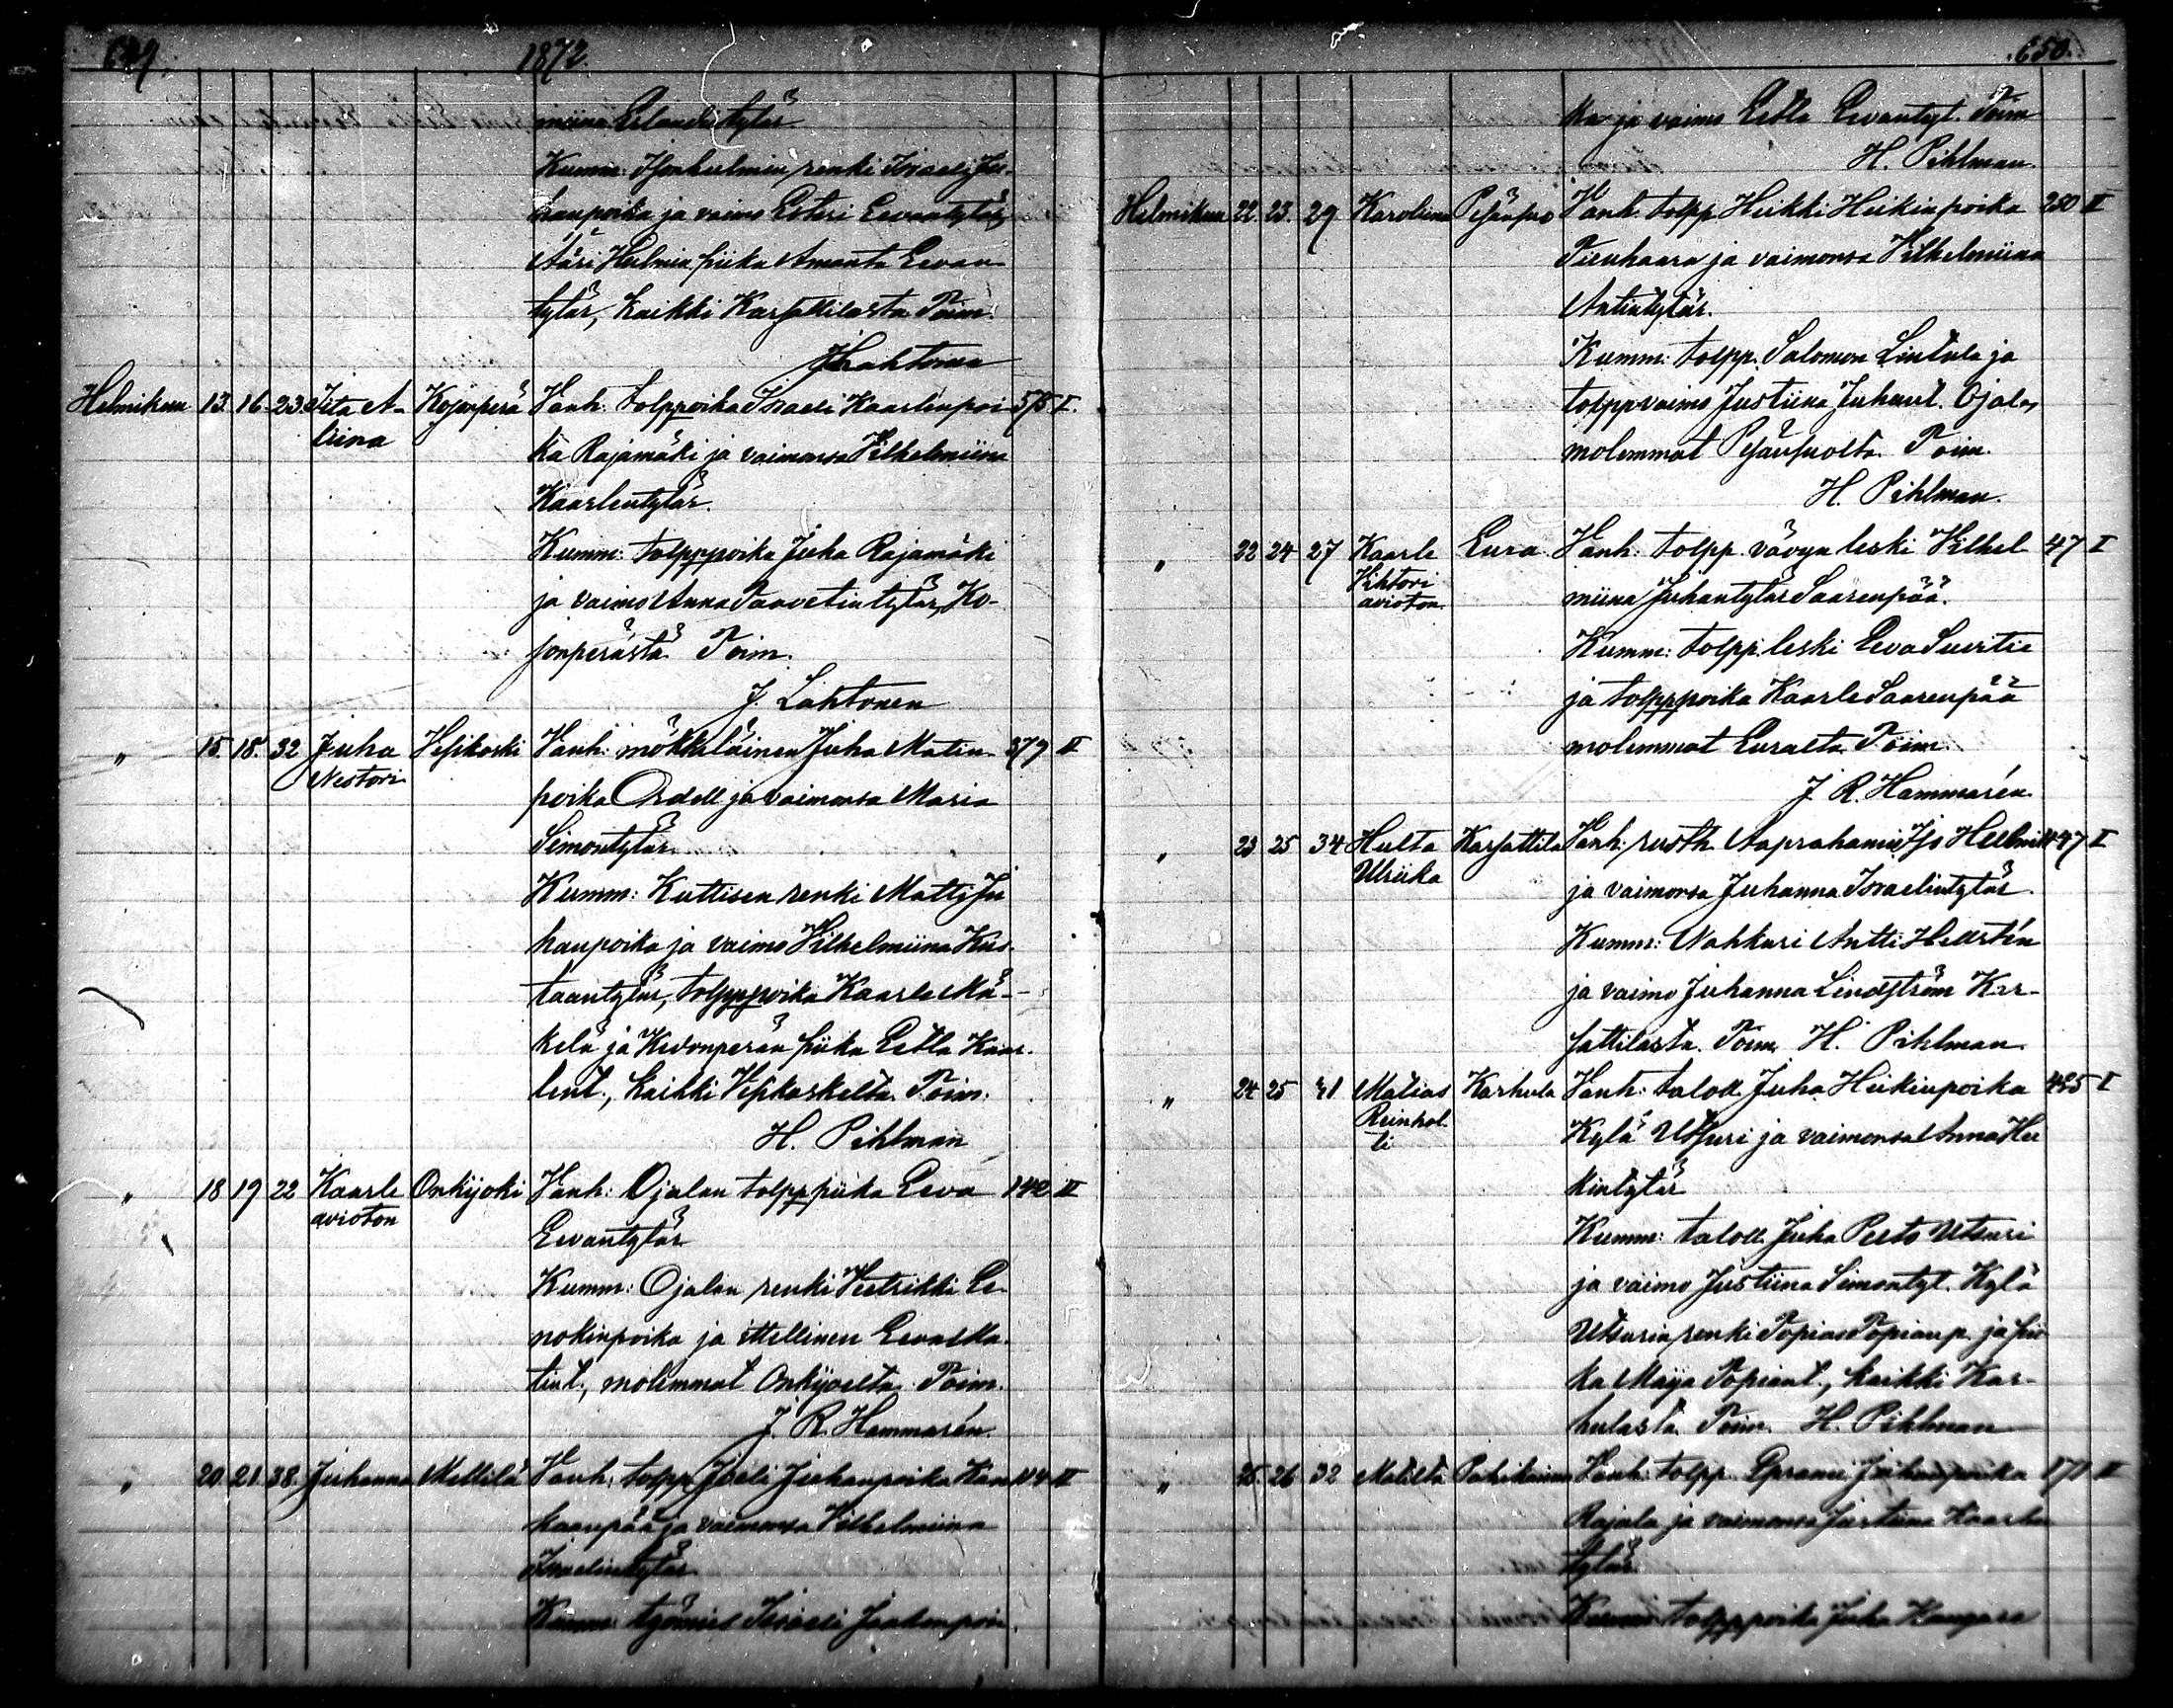 649. 1872.
miina Erlanditytär.
Kumm: Isonhulmin renki Israeli Ju-
hanpoika ja vaimo Esteri Eevantytär,
Ääri Hulmin piika Amanta Eevan-
tytär, kaikki Karhattilasta. Toim.
J. Lahtonen
Helmikuu 13. 16. 23. Iita A- Kojonperä Vanh: tolppoika Israeli Kaarlenpoi- 575 I.
liina ka Rajamäki ja vaimonsa Vilhelmiina
Kaarlentytär.
Kumm: tolpppoika Juha Rajamäki
ja vaimo Anna Taavetintytär, Ko-
jonperästä. Toim.
J. Lahtonen
" 15. 18. 32 Juha Vesikoski Vanh: mökkiläinen Juha Matin- 379 II
Nestori poika Ordell ja vaimonsa Maria
Simontytär.
Kumm: Kuttisen renki Matti Ju
hanpoika ja vaimo Vilhelmiina Kus-
taantytär, tolpppoika Kaarle Mä-
kelä ja Kedonperän piika Eetla Kaar-
lent., kaikki Vesikoskelta. Toim.
H. Pihlman
" 18 19 22 Kaarle Onkijoki Vanh: Ojalan tolpppiika Eeva 142 II
avioton Eevantytär
Kumm: Ojalan renki Veetrikki Ee-
nokinpoika ja ittellinen Eeva Ma-
tint., molemmat Onkijoelta. Toim.
J. R. Hammarén.
" 20. 21. 38. Juhanna Mellilä Vanh: tolpp. Joeli Juhanpoika Kan 114 II
kaanpää ja vaimonsa Vilhelmiina
Israelintytär
Kumm: työmies Israeli Jaakonpoi-
650.
ka ja vaimo Eetla Eevantyt. Toim
H. Pihlman.
Helmikuu 22. 23. 29 Karoliina Pesänsuo Vanh. tolpp. Heikki Heikinpoika 250 II
Tienhaara ja vaimonsa Vilhelmiina
Antintytär.
Kumm: tolpp. Salomon Lintula ja
tolppvaimo Justiina Juhant. Ojala,
molemmat Pesänsuolta. Toim.
H. Pihlman.
" 22 24 27 Kaarle Eura Vanh: tolpp. vävyn leski Vilhel 47 I
Vihtori miina Juhantytär Saarenpää.
avioton
Kumm: tolpp. leski Eeva Suertie
ja tolpppoika Kaarle Saarenpää
molemmat Euralta. Toim.
J. R. Hammarén.
" 23 25 34 Hulta Karhattila Vanh: rusth. Aaprahami Iso Hulmi 447 I
Ulriika ja vaimonsa Juhanna Israelintytär.
Kumm: Nahkuri Antti Hellstén
ja vaimo Juhanna Lindström Kar-
hattilasta. Toim. H. Pihlman.
" 24 25 41 Matias Karhula Vanh: taloll. Juha Heikinpoika 425 I
Reinhol- Kylä Utsuri ja vaimonsa Anna Hei
ti kintytär
Kumm: taloll. Juha Pelto Utsuri
ja vaimo Justiina Simontyt. Kylä
Utsurin renki Topias Topianp. ja pii
ka Maija Topiant., kaikki Kar-
hulasta. Toim. H. Pihlman
" 25 26 32 Matilta Vanh: tolpp. Eprami Juhanpoika 171 II
Rajala ja vaimonsa Justiina Kaarlen
tytär.
Kumm: tolpppoika Juha